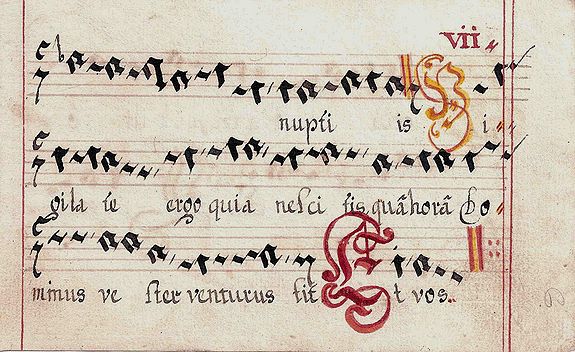 vii
nupti is V i
gila te ergo quia nesci tis quā horā Do
minus ve ster venturus sit Et vos..